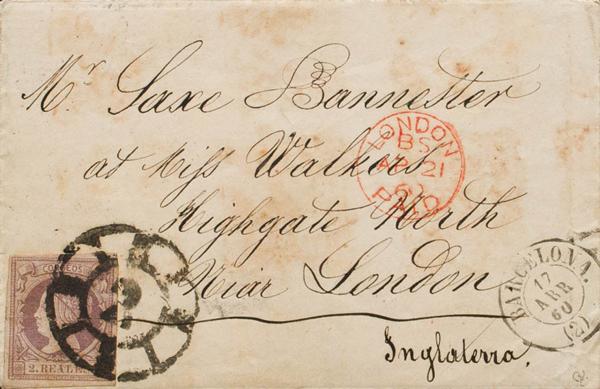 Mr Saxe Bannester
at Miss Walkers
Highgate North
Near London
Inglaterra.
LONDON
BS
AP 21
60
PAID
BARCELONA.
17
ABR
60
(2)
CORREOS
2. REALES
2